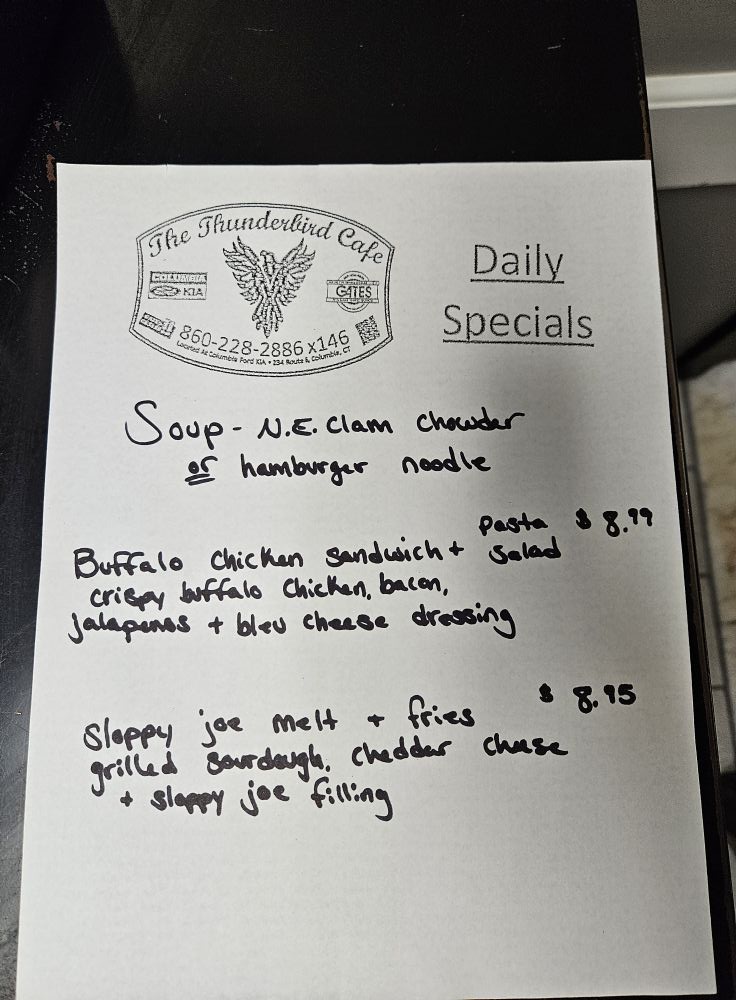 The Thunderbird Cafe
COLUMBIA
Ford KIA
GATES
860-228-2886 x146
Located At Columbia Ford KIA • 234 Route 6, Columbia, CT
Daily
Specials
Soup - N.E. Clam Chowder
or hamburger noodle
Pasta $ 8.99
Buffalo Chicken sandwich + Salad
crispy buffalo chicken, bacon,
jalapenos + bleu cheese dressing
Sloppy joe melt + fries $ 8.95
grilled sourdough, cheddar cheese
+ sloppy joe filling